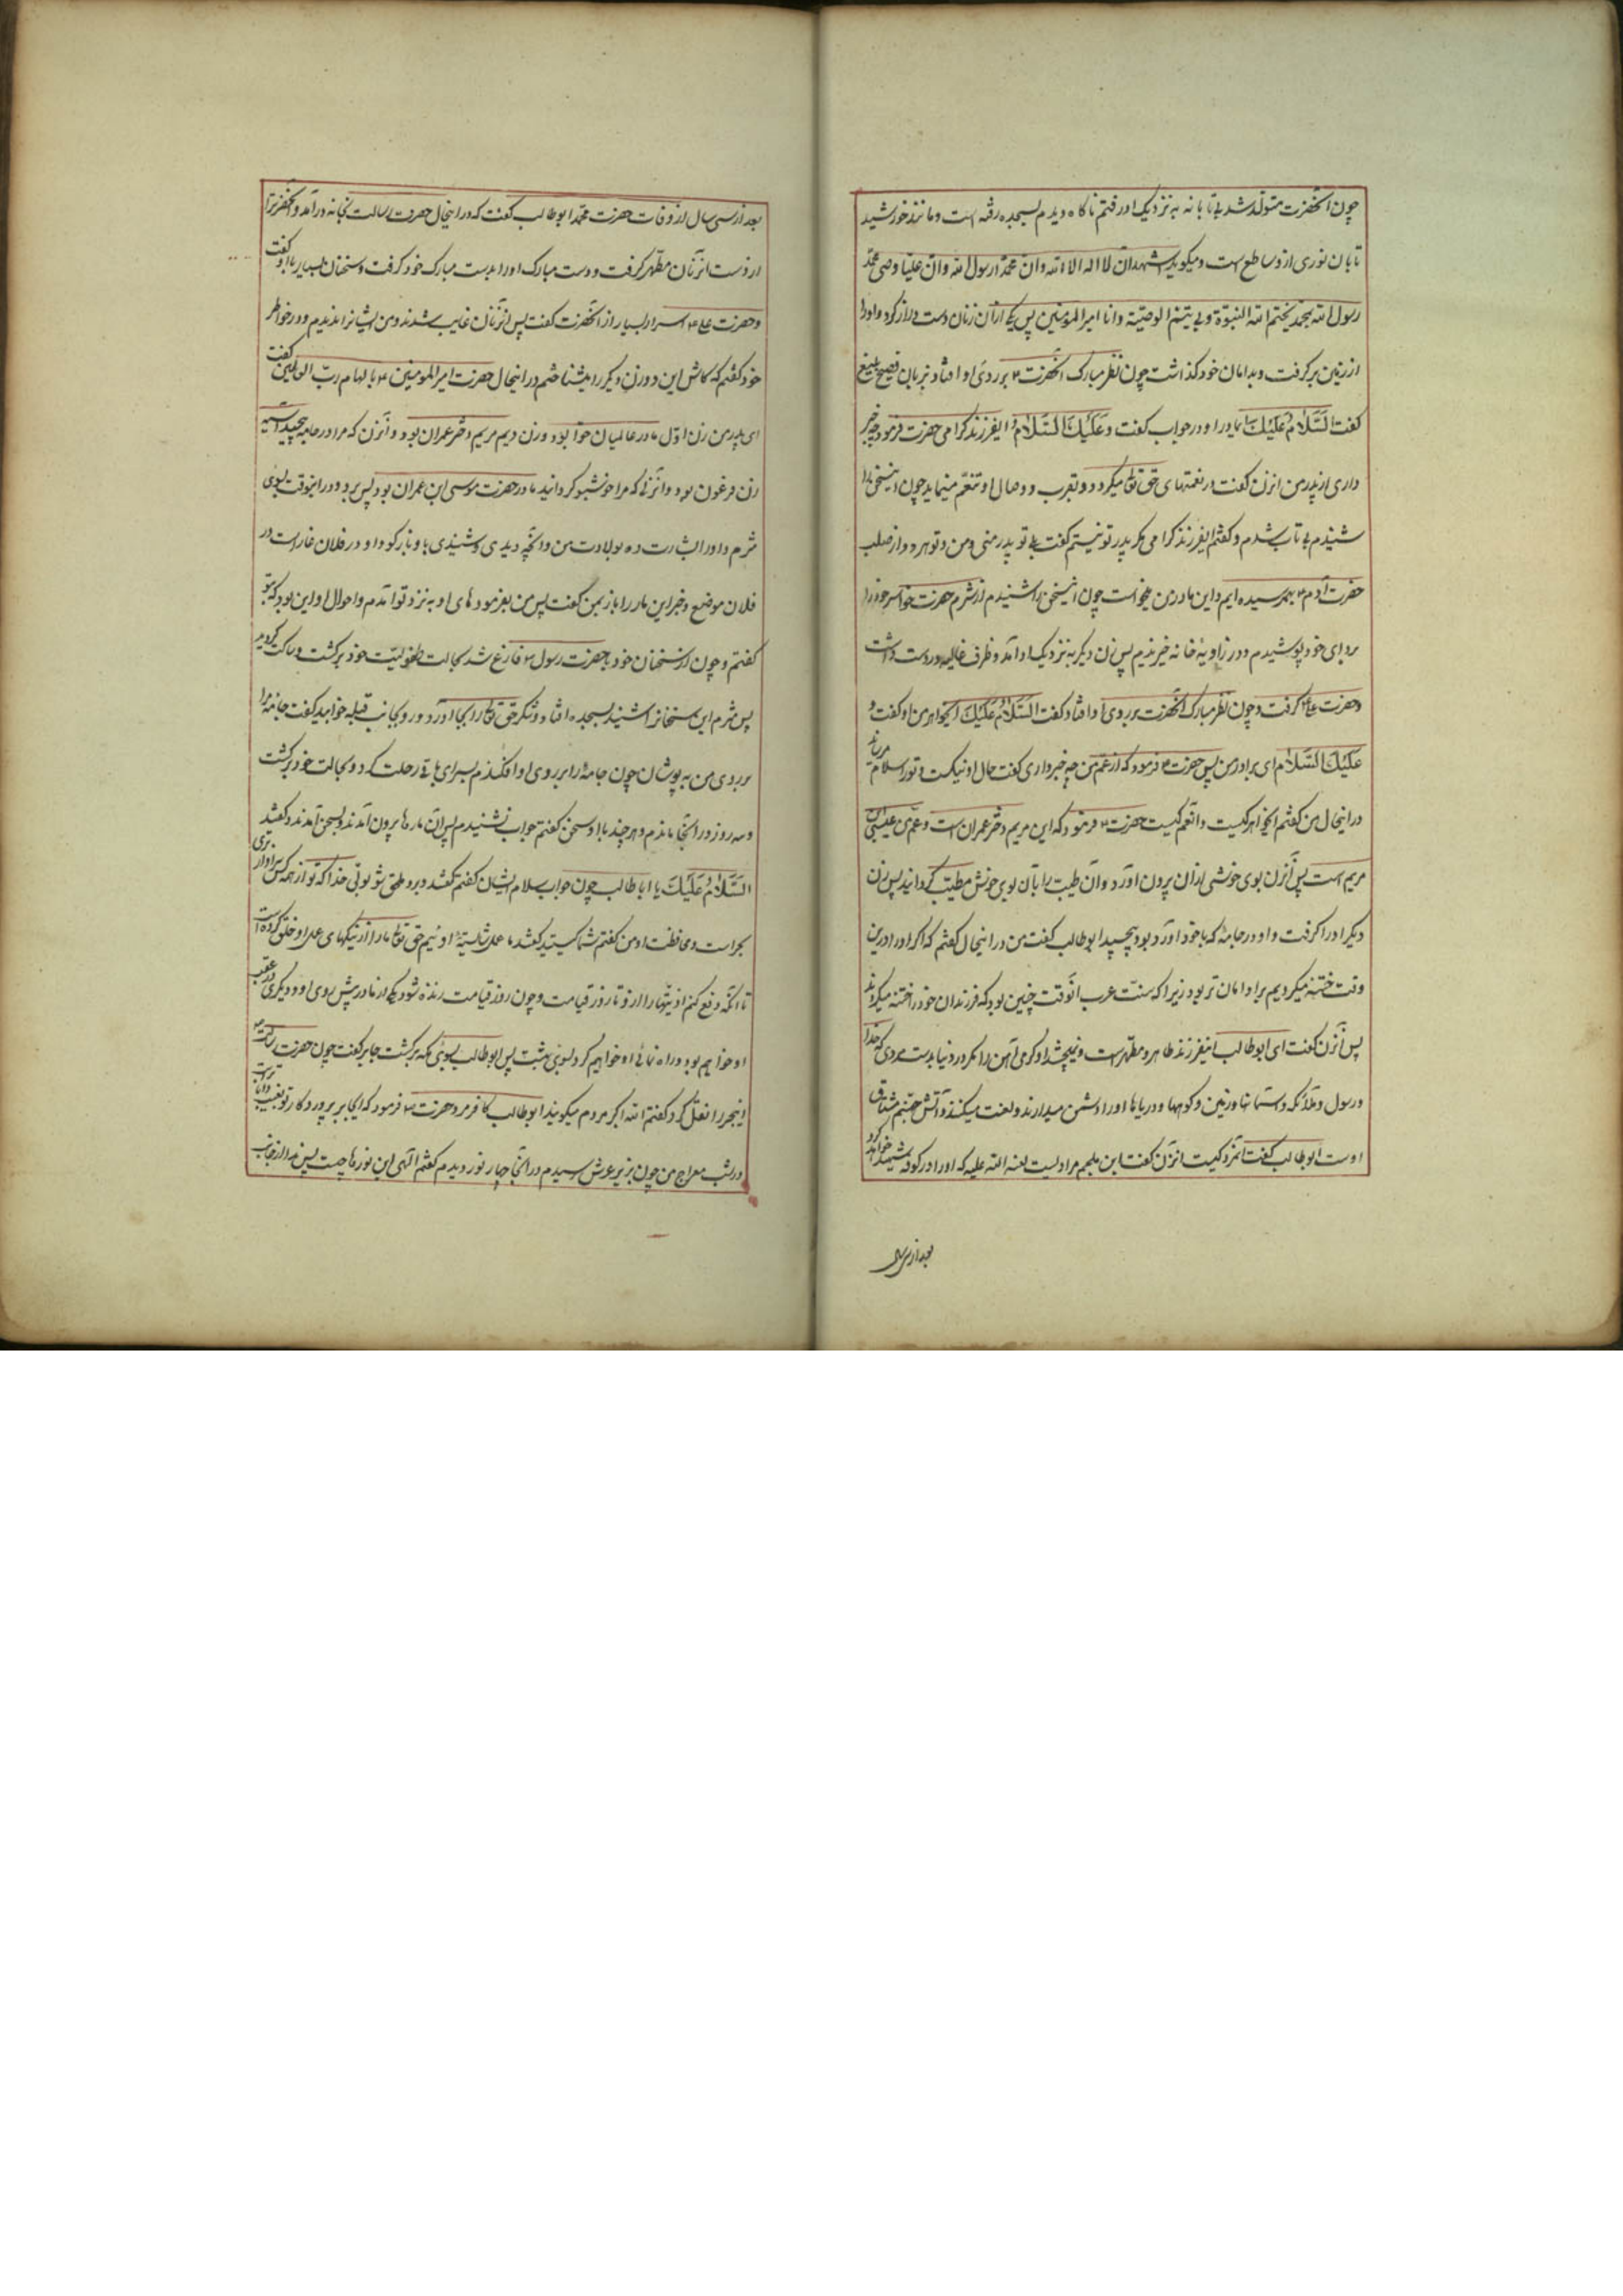 چون آنحضرت متولد شد بی تابانه به نزدیک او رفتم ناکاه دیدم بسجده رفته است و مانند خورشید
تابان نوری از و ساطع است و میکوید اشهد ان لا اله الا الله و ان محمدا رسول الله و ان علیا وصی محمد
رسول الله بمحمد یختم الله النبوة و بی یتم الوصیة و انا امیر المؤمنین پس یکی از آن زنان دست دراز کرد و اورا
از زمین بر کرفت و بدامان خود کذاشت چون نظر مبارک آنحضرت بر روی او افتاد بزبان فصیح بلیغ
کفت السَّلَامُ عَلَیْكَ یا مادر او در جواب کفت و عَلَیْكَ السَّلَامُ ایفرزند کرامی حضرت فرمود چه خبر
داری از پدر من انزن کفت در نعمتهای حق تعالی میکردد و بتقرب و وصال او تنعم مینماید چون اینسخن را
شنیدم بی تاب شدم و کفتم ایفرزند کرامی مکر پدر تو نیستم کفت بلی تو پدر منی و من و تو هر دو از صلب
حضرت آدم بهم رسیده ایم و این مادر من حواست چون اینسخن را شنیدم از شرم حضرت حوا سر خود را
بردای خود پوشیدم و در زاویهٔ خانه خزیدم پس زن دیکر به نزدیک او آمد و ظرف غالیه در دست داشت
و حضرت علی را کرفت و چون نظر مبارک آنحضرت بر روی او افتاد کفت السَّلَامُ عَلَیْكَ ایخواهر من او کفت و
عَلَیْكَ السَّلَامُ ای برادر من پس حضرت فرمود که از عم من چه خبر داری کفت حال او نیکست و تو را سلام میرساند
در اینحال من کفتم اینخواهر کیست و انعم کیست حضرت فرمود که این مریم دختر عمران است و عم من عیسی بن
مریم است پس آنزن بوی خوشی از ان بیرون آورد و آن طیب را بآن بوی خوش مطیب کردانید پس زن
دیکر او را کرفت و او در جامهٔ که با خود آورده بود پیچید ابو طالب کفت من در اینحال کفتم که اکر او را در این
وقت ختنه میکردیم بر او آسان تر بود زیرا که سنت عرب انوقت چنین بود که فرزندان خود را ختنه میکردند
پس آنزن کفت ای ابو طالب اینفرزند طاهر و مطهر است و نمیچشد او کرمی آهن را مکر در دنیا بدست مردی که خدا
و رسول و ملائکه و آسمانها و زمین و کوهها و دریاها او را دشمن میدارند و لعنت میکنند و آتش جهنم مشتاق
اوست ابو طالب کفت آنمرد کیست انزن کفت ابن ملجم مرادیست لعنه الله علیه که او را در کوفه شهید خواهد کرد
بعد از سی سال
بعد از سی سال از وفات حضرت محمد ابو طالب کفت که در اینحال حضرت رسالت بخانه در آمد و آنحضرت را
از دست آن زنان مطهر کرفت و دست مبارک او را بدست مبارک خود کرفت و سخنان بسیار با او کفت
و حضرت علی اسرار بسیار از آنحضرت کفت پس انزنان غایب شدند و من ایشانرا ندیدم و در خواطر
خود کفتم که کاش این دو زن دیکر را میشناختم در اینحال حضرت امیر المومنین بالهام رب العالمین کفت
ای پدر من زن اول مادر عالمیان حوا بود و زن دیم مریم دختر عمران بود و آنزن که مرا در جامه پیچید آسیه
زن فرعون بود و آنزنی که مرا خوشبو کردانید مادر حضرت موسی ابن عمران بود پس برو در اینوقت بسوی
مثرم و او را بشارت ده بولادت من و انچه دیدی و شنیدی باو باز کو و او در فلان غار است در
فلان موضع و خبر این مار را باز بمن کفت پس من بفرمودهای او به نزد تو آمدم و احوال او این بود که بتو
کفتم و چون از سخنان خود با حضرت رسول فارغ شد بحالت طفولیت خود برکشت و ساکت کردید
پس مثرم این سخنانرا شنید بسجده افتاد و شکر حق تعالی را بجا آورد و رو بجانب قبله خوابید کفت جامهٔ مرا
بر روی من به پوشان چون جامه را بر روی او افکندم بسرای باقی رحلت کرد و بحالت خود برکشت
و سه روز در آنجا ماندم و هر چند با او سخن کفتم جواب نشنیدم پس آن مارها بیرون آمدند و بسخن آمدند و کفتند
السَّلَامُ عَلَیْكَ یا ابا طالب چون جواب سلام ایشان کفتم کفتند برو ملحق شو بولی خدا که تو از همه کس سزاوار تری
بحراست و محافظت او من کفتم شما کیستید کفتند ما عمل شایستهٔ اوئیم حق تعالی ما را از نیکیهای عمل او خلق کرده است
تا آنکه دفع کنیم اذیتها را از و تا روز قیامت و چون روز قیامت زنده شود یکی از ما در پیش روی او و دیکری در عقب
او خواهیم بود و راه نمائی او خواهیم کرد بسوی بهشت پس ابو طالب بسوی مکه برکشت جابر کفت چون حضرت رسالت
اینخبر را نقل کرد کفتم الله اکبر مردم میکویند ابو طالب کافر مرد حضرت فرمود که ای جابر پرورد کار تو بغیب دانا تر است
در شب معراج من چون بزیر عرش رسیدم در آنجا چهار نور دیدم کفتم الهی این نورها چیست پس ندا از جانب